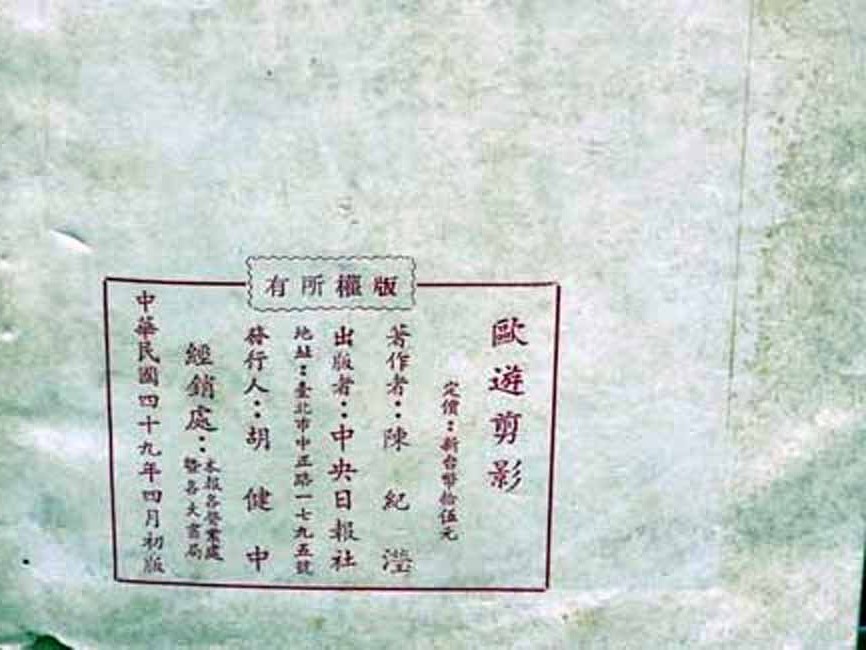 版權所有
歐遊剪影
定價：新台幣拾伍元
著作者：陳紀瀅
出版者：中央日報社
地址：臺北市中正路一七九五號
發行人：胡健中
經銷處：本報各營業處
暨各大書局
中華民國四十九年四月初版